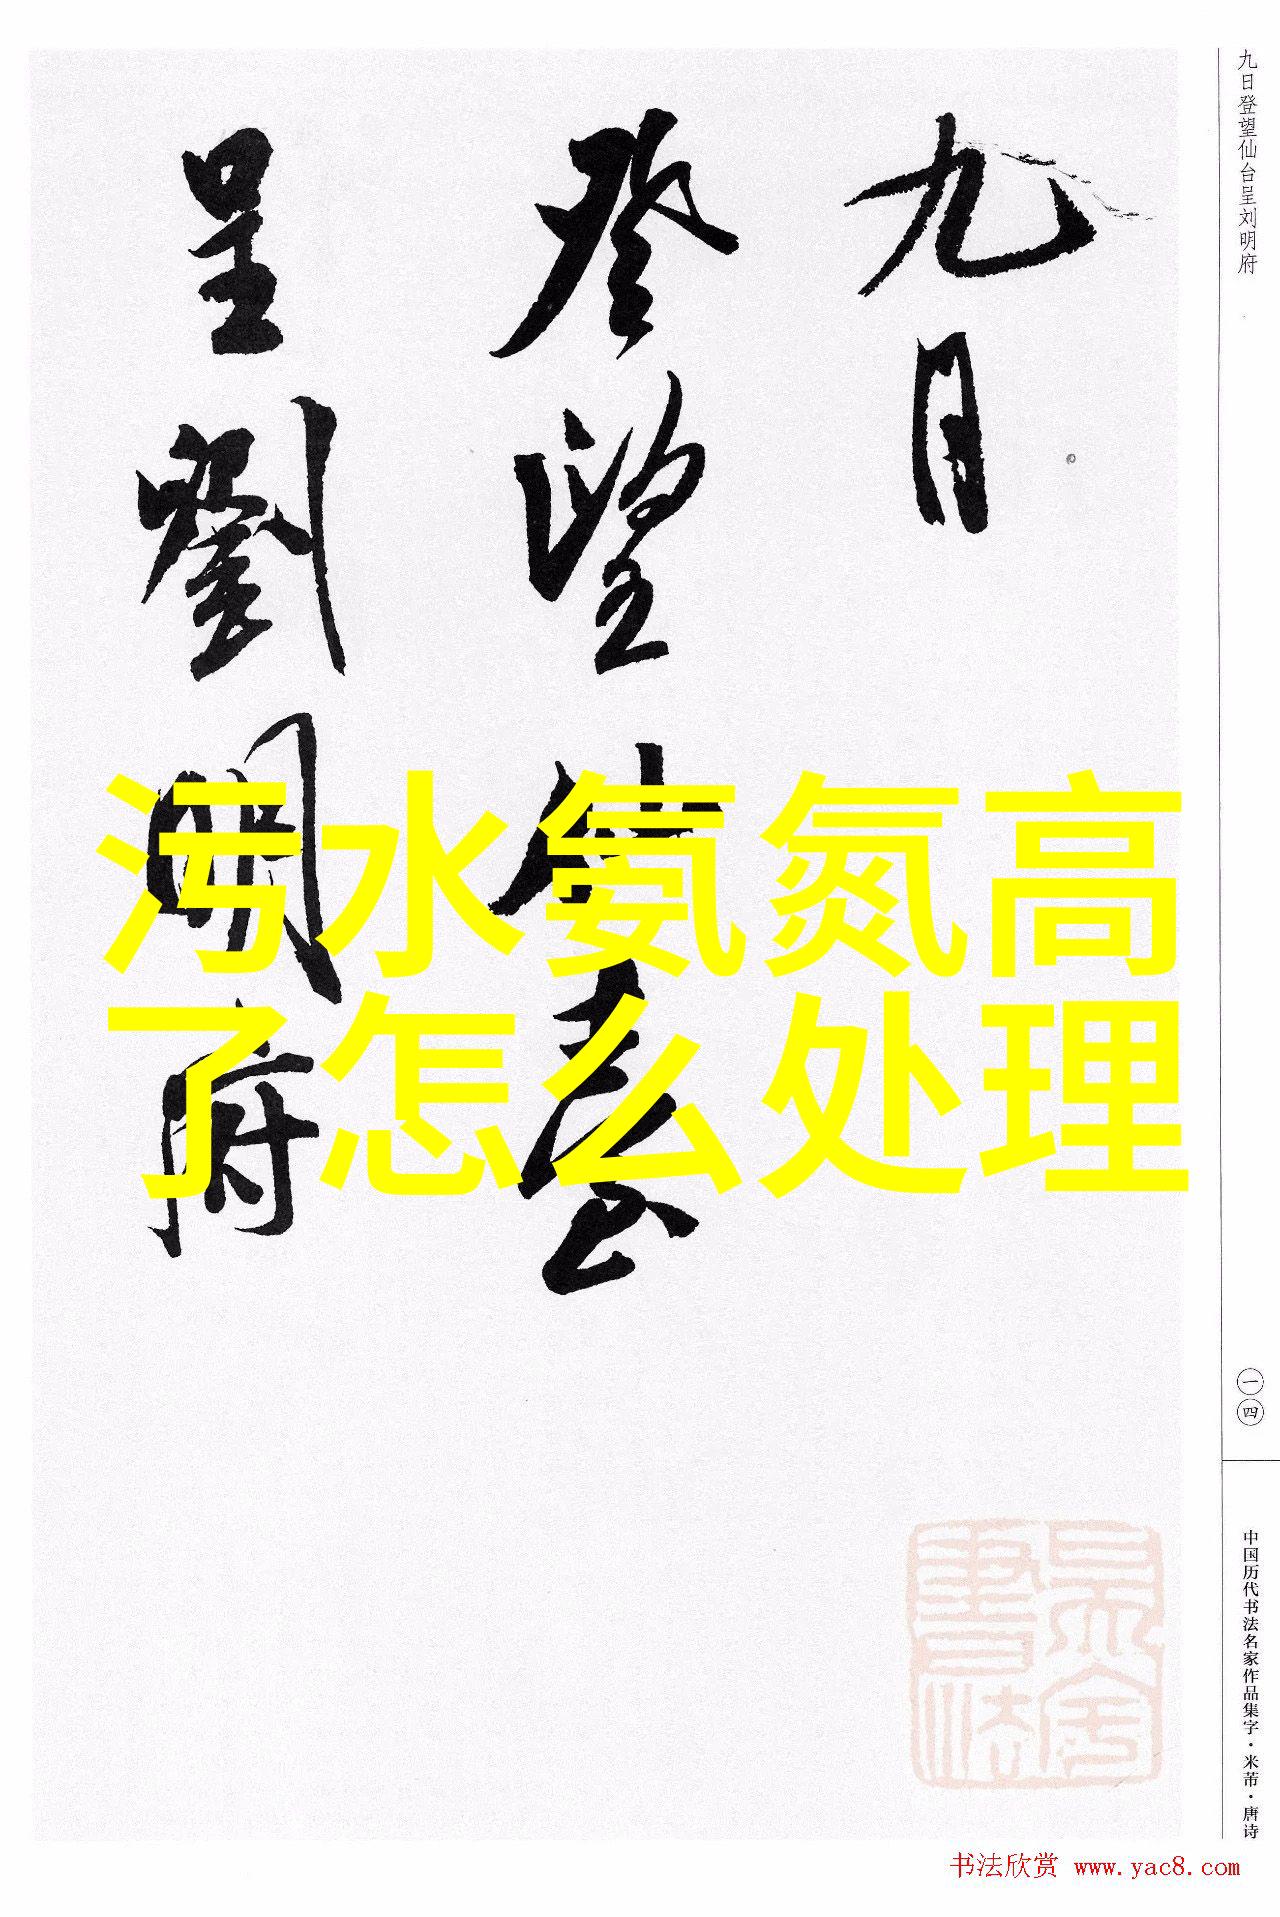 九日
登望仙臺
呈劉明府
污水氨氮高
了怎么处理
九日登望仙台呈刘明府
一四
中国历代书法名家作品集字·米芾·唐诗
书法欣赏 www.yac8.com